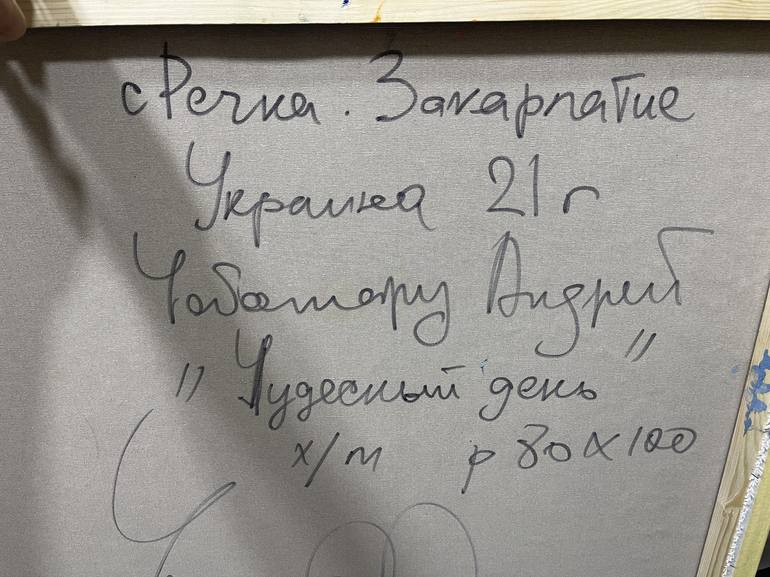 с Речка. Закарпатие
Украина 21 г
Чобатару Андрей
"Чудесный день"
х/м р 80х100